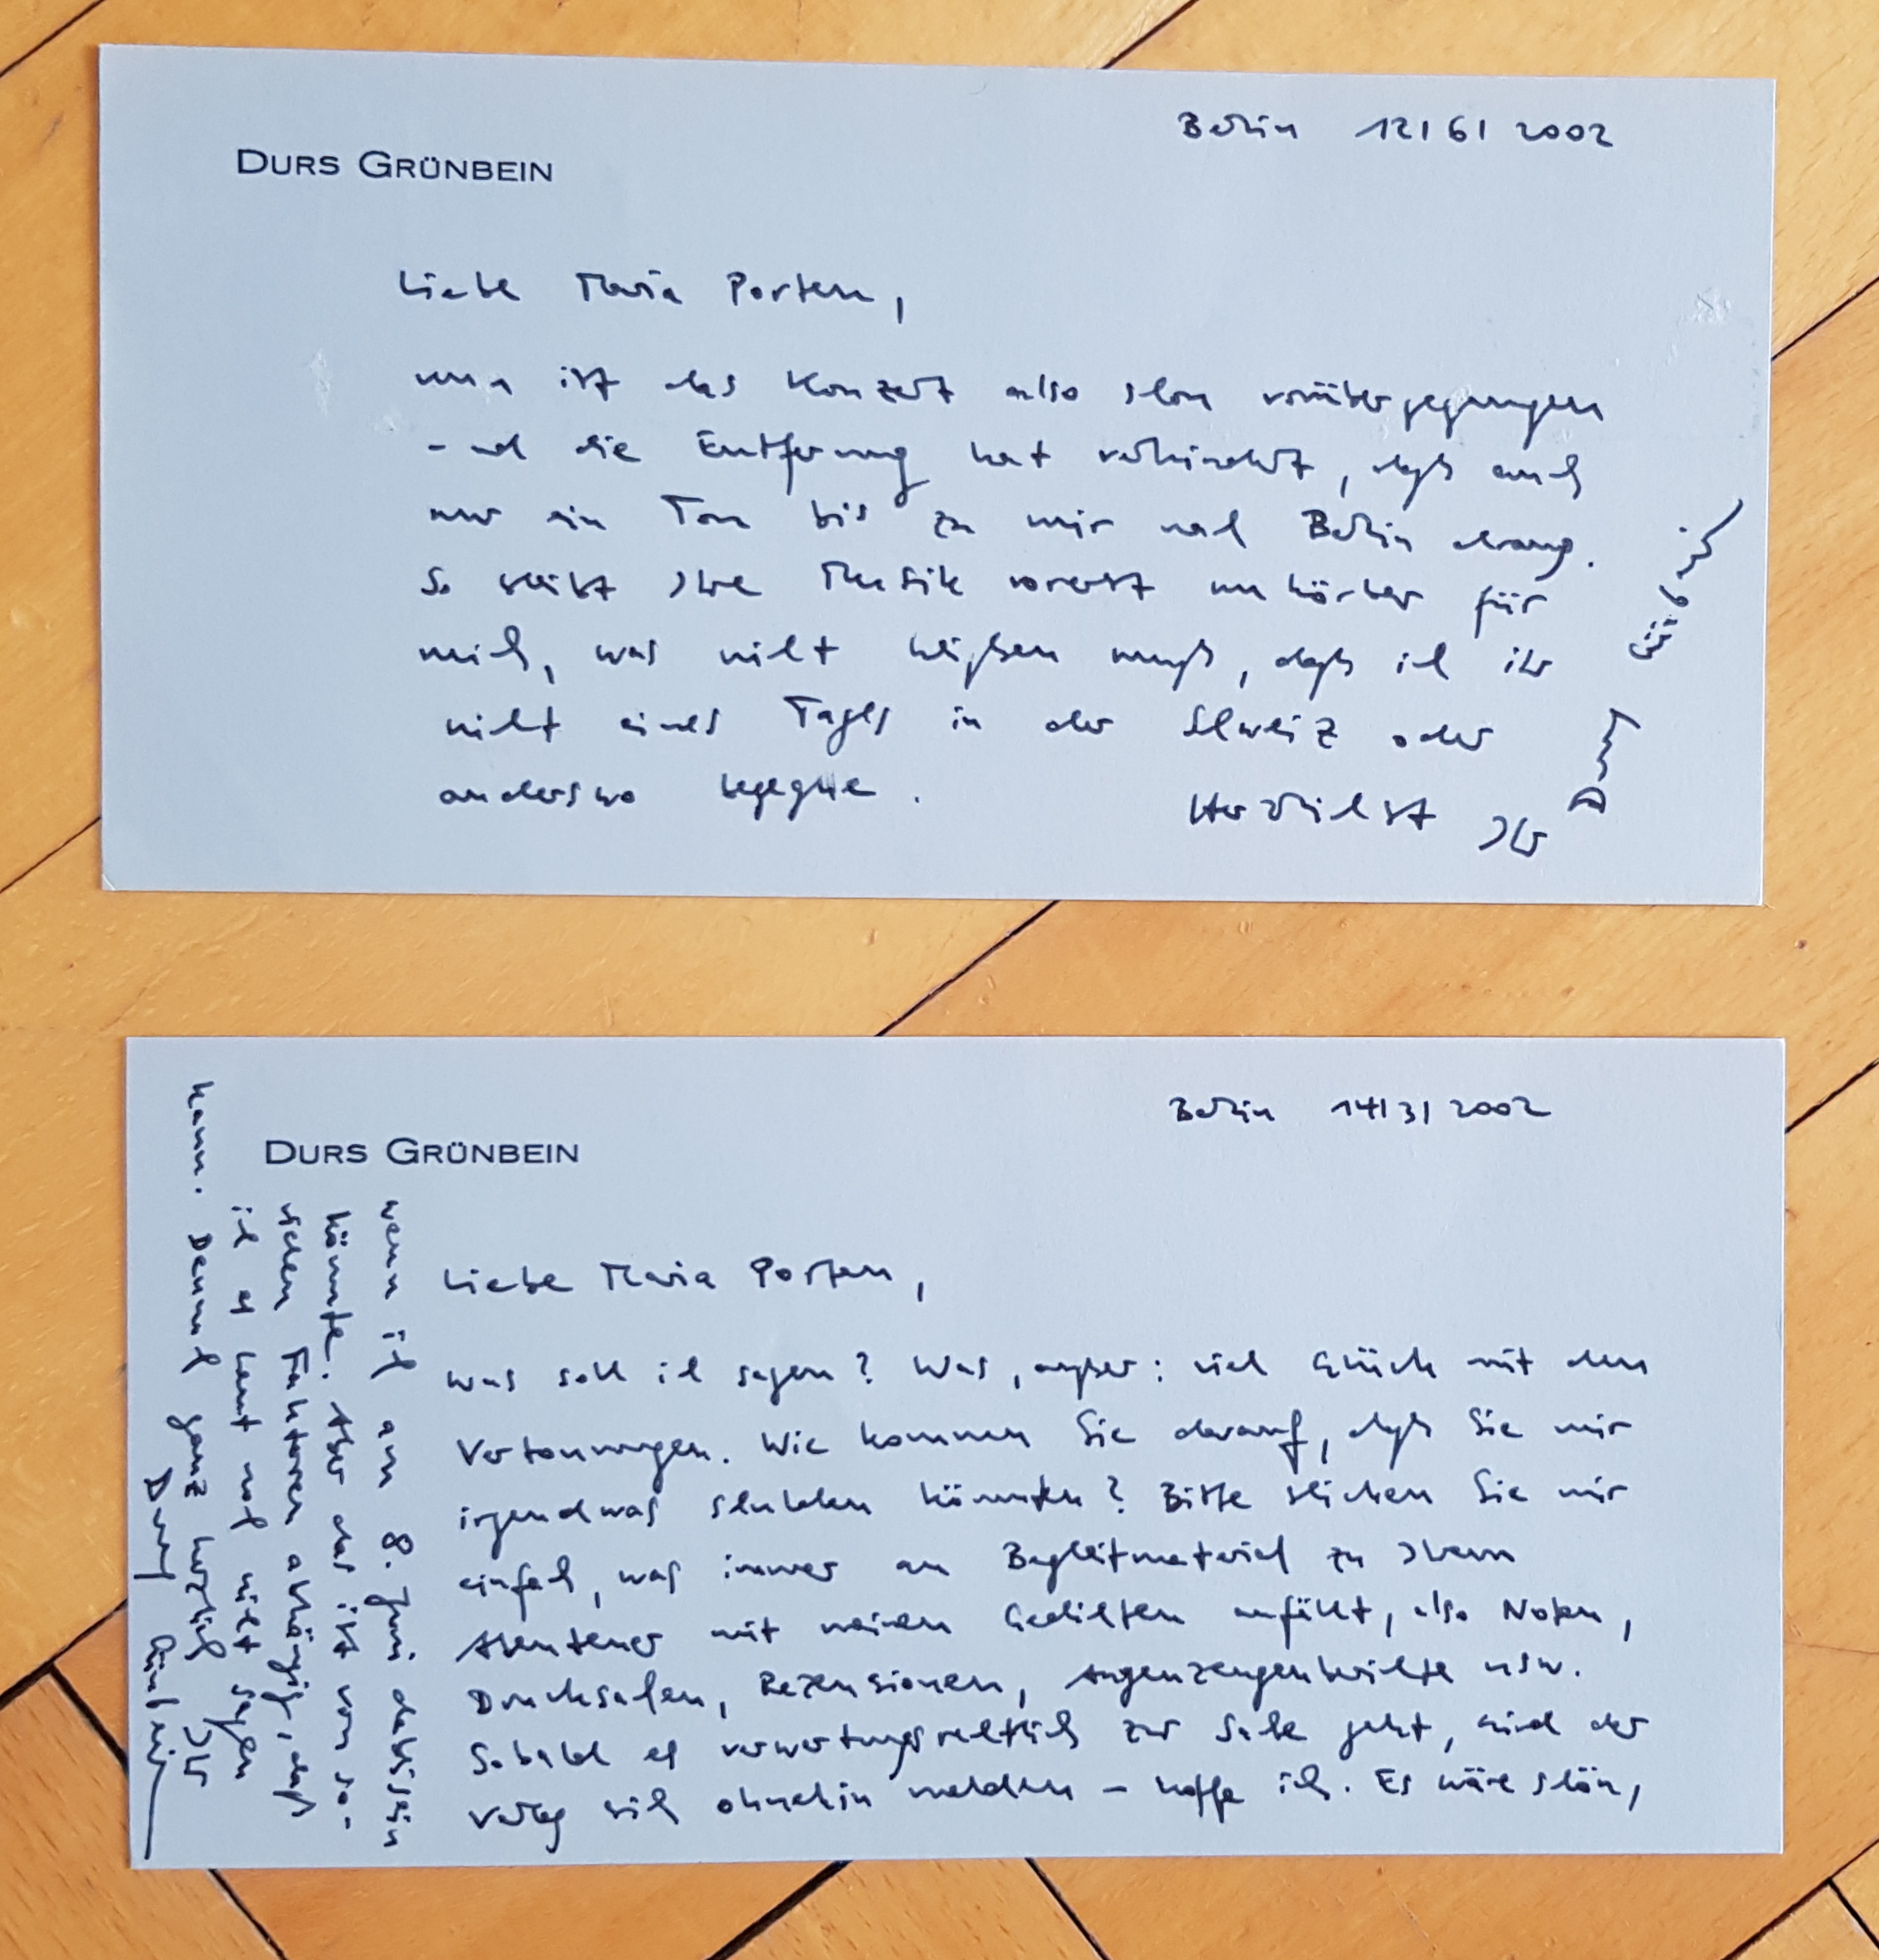 DURS GRÜNBEIN
Berlin 12/6/2002
Liebe Maria Porten,
nun ist das Konzert also schon vorübergegangen
und die Entfernung hat verhindert, daß auch
nur ein Ton bis zu mir nach Berlin drang.
So bleibt Ihre Musik vorerst unhörbar für
mich, was nicht heißen muß, daß ich ihr
nicht eines Tages in der Schweiz oder
anderswo begegne.
Herzlichst Ihr
Durs Grünbein
DURS GRÜNBEIN
Berlin 14/3/2002
Liebe Maria Porten,
was soll ich sagen? Was, außer: viel Glück mit den
Vertonungen. Wie kommen Sie darauf, daß Sie mir
irgendwas schulden könnten? Bitte schicken Sie mir
einfach, was immer an Begleitmaterial zu Ihrem
Abenteuer mit meinen Gedichten anfällt, also Noten,
Drucksachen, Rezensionen, Augenzeugenberichte usw.
Sobald es verwertungsrechtlich zur Sache geht, wird der
Verlag sich ohnehin melden – hoffe ich. Es wäre schön,
wenn ich am 8. Juni dabei sein
könnte. Aber das ist von so-
vielen Faktoren abhängig, daß
ich es heut noch nicht sagen
kann. Dennoch ganz herzlich Ihr
Durs Grünbein